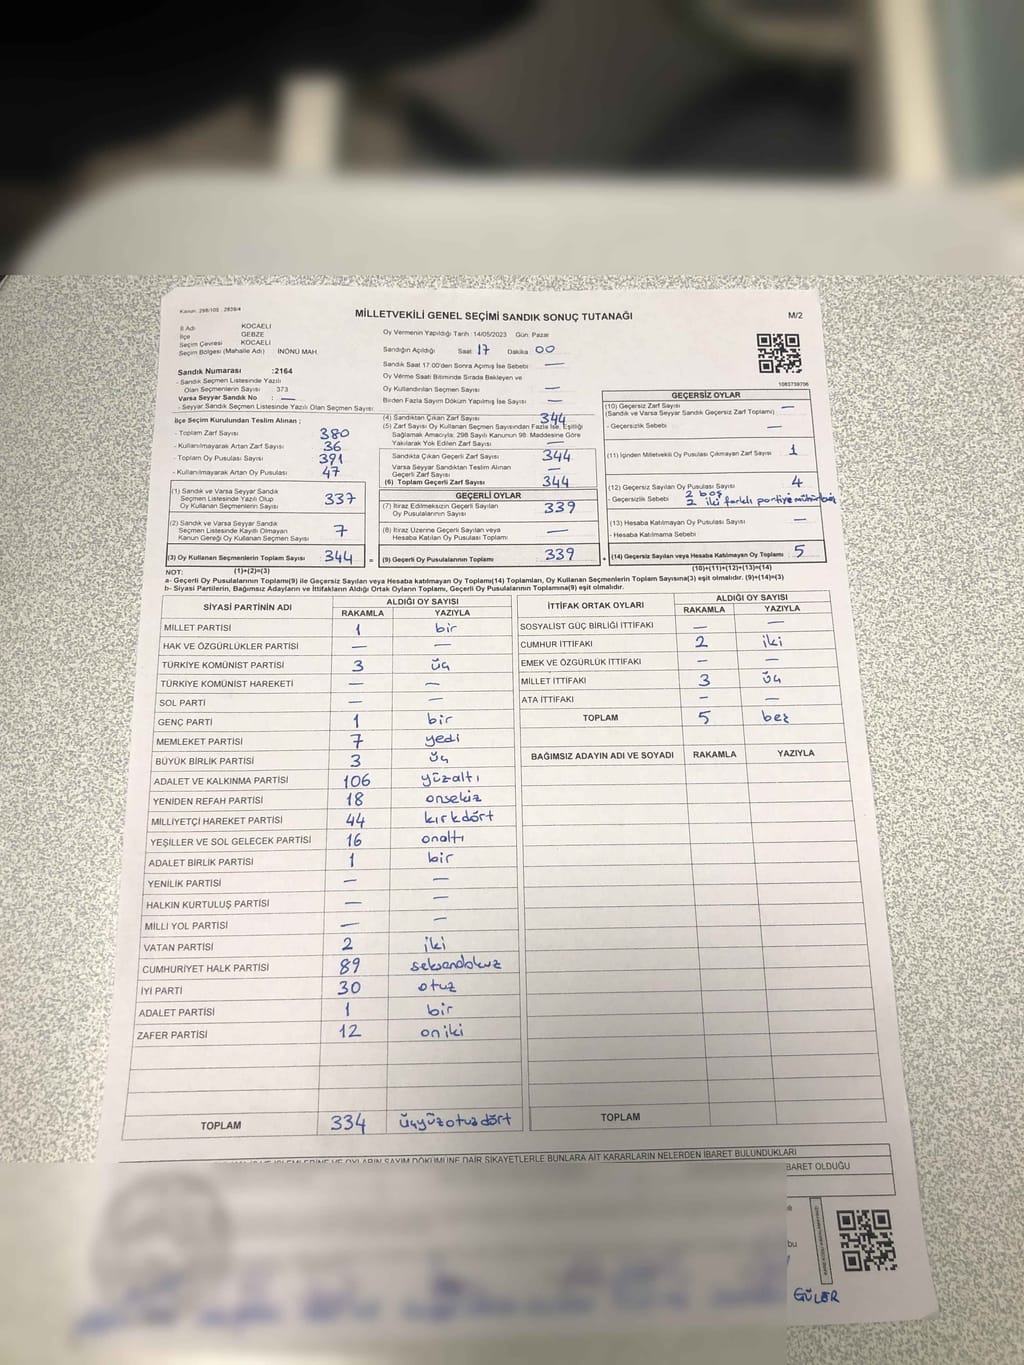 Kanun: 298/105 ; 2839/4
MİLLETVEKİLİ GENEL SEÇİMİ SANDIK SONUÇ TUTANAĞI
M/2
İl Adı KOCAELİ
İlçe GEBZE
Seçim Çevresi KOCAELİ
Seçim Bölgesi (Mahalle Adı) İNÖNÜ MAH.
Sandık Numarası :2164
- Sandık Seçmen Listesinde Yazılı
Olan Seçmenlerin Sayısı : 373
Varsa Seyyar Sandık No : —
- Seyyar Sandık Seçmen Listesinde Yazılı Olan Seçmen Sayısı:
İlçe Seçim Kurulundan Teslim Alınan ;
- Toplam Zarf Sayısı 380
- Kullanılmayarak Artan Zarf Sayısı 36
- Toplam Oy Pusulası Sayısı 391
- Kullanılmayarak Artan Oy Pusulası 47
(1) Sandık ve Varsa Seyyar Sandık
Seçmen Listesinde Yazılı Olup
Oy Kullanan Seçmenlerin Sayısı 337
(2) Sandık ve Varsa Seyyar Sandık
Seçmen Listesinde Kayıtlı Olmayan
Kanun Gereği Oy Kullanan Seçmen Sayısı 7
(3) Oy Kullanan Seçmenlerin Toplam Sayısı 344 =
Oy Vermenin Yapıldığı Tarih : 14/05/2023 Gün: Pazar
Sandığın Açıldığı Saat: 17 Dakika 00
Sandık Saat 17:00'den Sonra Açılmış İse Sebebi —
Oy Verme Saati Bitiminde Sırada Bekleyen ve
Oy Kullandırılan Seçmen Sayısı —
Birden Fazla Sayım Döküm Yapılmış İse Sayısı —
(4) Sandıktan Çıkan Zarf Sayısı 344
(5) Zarf Sayısı Oy Kullanan Seçmen Sayısından Fazla İse, Eşitliği
Sağlamak Amacıyla, 298 Sayılı Kanunun 98. Maddesine Göre
Yakılarak Yok Edilen Zarf Sayısı —
Sandıkta Çıkan Geçerli Zarf Sayısı 344
Varsa Seyyar Sandıktan Teslim Alınan
Geçerli Zarf Sayısı —
(6) Toplam Geçerli Zarf Sayısı 344
GEÇERLİ OYLAR
(7) İtiraz Edilmeksizin Geçerli Sayılan
Oy Pusulalarının Sayısı 339
(8) İtiraz Üzerine Geçerli Sayılan veya
Hesaba Katılan Oy Pusulası Toplamı —
(9) Geçerli Oy Pusulalarının Toplamı 339 +
1063739706
GEÇERSİZ OYLAR
(10) Geçersiz Zarf Sayısı —
(Sandık ve Varsa Seyyar Sandık Geçersiz Zarf Toplamı)
- Geçersizlik Sebebi —
(11) İçinden Milletvekili Oy Pusulası Çıkmayan Zarf Sayısı 1
(12) Geçersiz Sayılan Oy Pusulası Sayısı 4
- Geçersizlik Sebebi 2 boş
2 iki farklı partiye mühür
(13) Hesaba Katılmayan Oy Pusulası Sayısı —
- Hesaba Katılmama Sebebi
(14) Geçersiz Sayılan veya Hesaba Katılmayan Oy Toplamı 5
NOT: (1)+(2)=(3) (10)+(11)+(12)+(13)=(14)
a- Geçerli Oy Pusulalarının Toplamı(9) ile Geçersiz Sayılan veya Hesaba katılmayan Oy Toplamı(14) Toplamları, Oy Kullanan Seçmenlerin Toplam Sayısına(3) eşit olmalıdır. (9)+(14)=(3)
b- Siyasi Partilerin, Bağımsız Adayların ve İttifakların Aldığı Ortak Oyların Toplamı, Geçerli Oy Pusulalarının Toplamına(9) eşit olmalıdır.
SİYASİ PARTİNİN ADI ALDIĞI OY SAYISI
RAKAMLA YAZIYLA
MİLLET PARTİSİ 1 bir
HAK VE ÖZGÜRLÜKLER PARTİSİ — —
TÜRKİYE KOMÜNİST PARTİSİ 3 üç
TÜRKİYE KOMÜNİST HAREKETİ — —
SOL PARTİ — —
GENÇ PARTİ 1 bir
MEMLEKET PARTİSİ 7 yedi
BÜYÜK BİRLİK PARTİSİ 3 üç
ADALET VE KALKINMA PARTİSİ 106 yüzaltı
YENİDEN REFAH PARTİSİ 18 onsekiz
MİLLİYETÇİ HAREKET PARTİSİ 44 kırkdört
YEŞİLLER VE SOL GELECEK PARTİSİ 16 onaltı
ADALET BİRLİK PARTİSİ 1 bir
YENİLİK PARTİSİ — —
HALKIN KURTULUŞ PARTİSİ — —
MİLLİ YOL PARTİSİ — —
VATAN PARTİSİ 2 iki
CUMHURİYET HALK PARTİSİ 89 seksendokuz
İYİ PARTİ 30 otuz
ADALET PARTİSİ 1 bir
ZAFER PARTİSİ 12 oniki
TOPLAM 334 üçyüzotuzdört
İTTİFAK ORTAK OYLARI ALDIĞI OY SAYISI
RAKAMLA YAZIYLA
SOSYALİST GÜÇ BİRLİĞİ İTTİFAKI — —
CUMHUR İTTİFAKI 2 iki
EMEK VE ÖZGÜRLÜK İTTİFAKI — —
MİLLET İTTİFAKI 3 üç
ATA İTTİFAKI — —
TOPLAM 5 beş
BAĞIMSIZ ADAYIN ADI VE SOYADI RAKAMLA YAZIYLA
TOPLAM
İŞLEMLERİNE VE OYLARIN SAYIM DÖKÜMÜNE DAİR ŞİKAYETLERLE BUNLARA AİT KARARLARIN NELERDEN İBARET BULUNDUKLARI
BARET OLDUĞU
bu
GÜLER